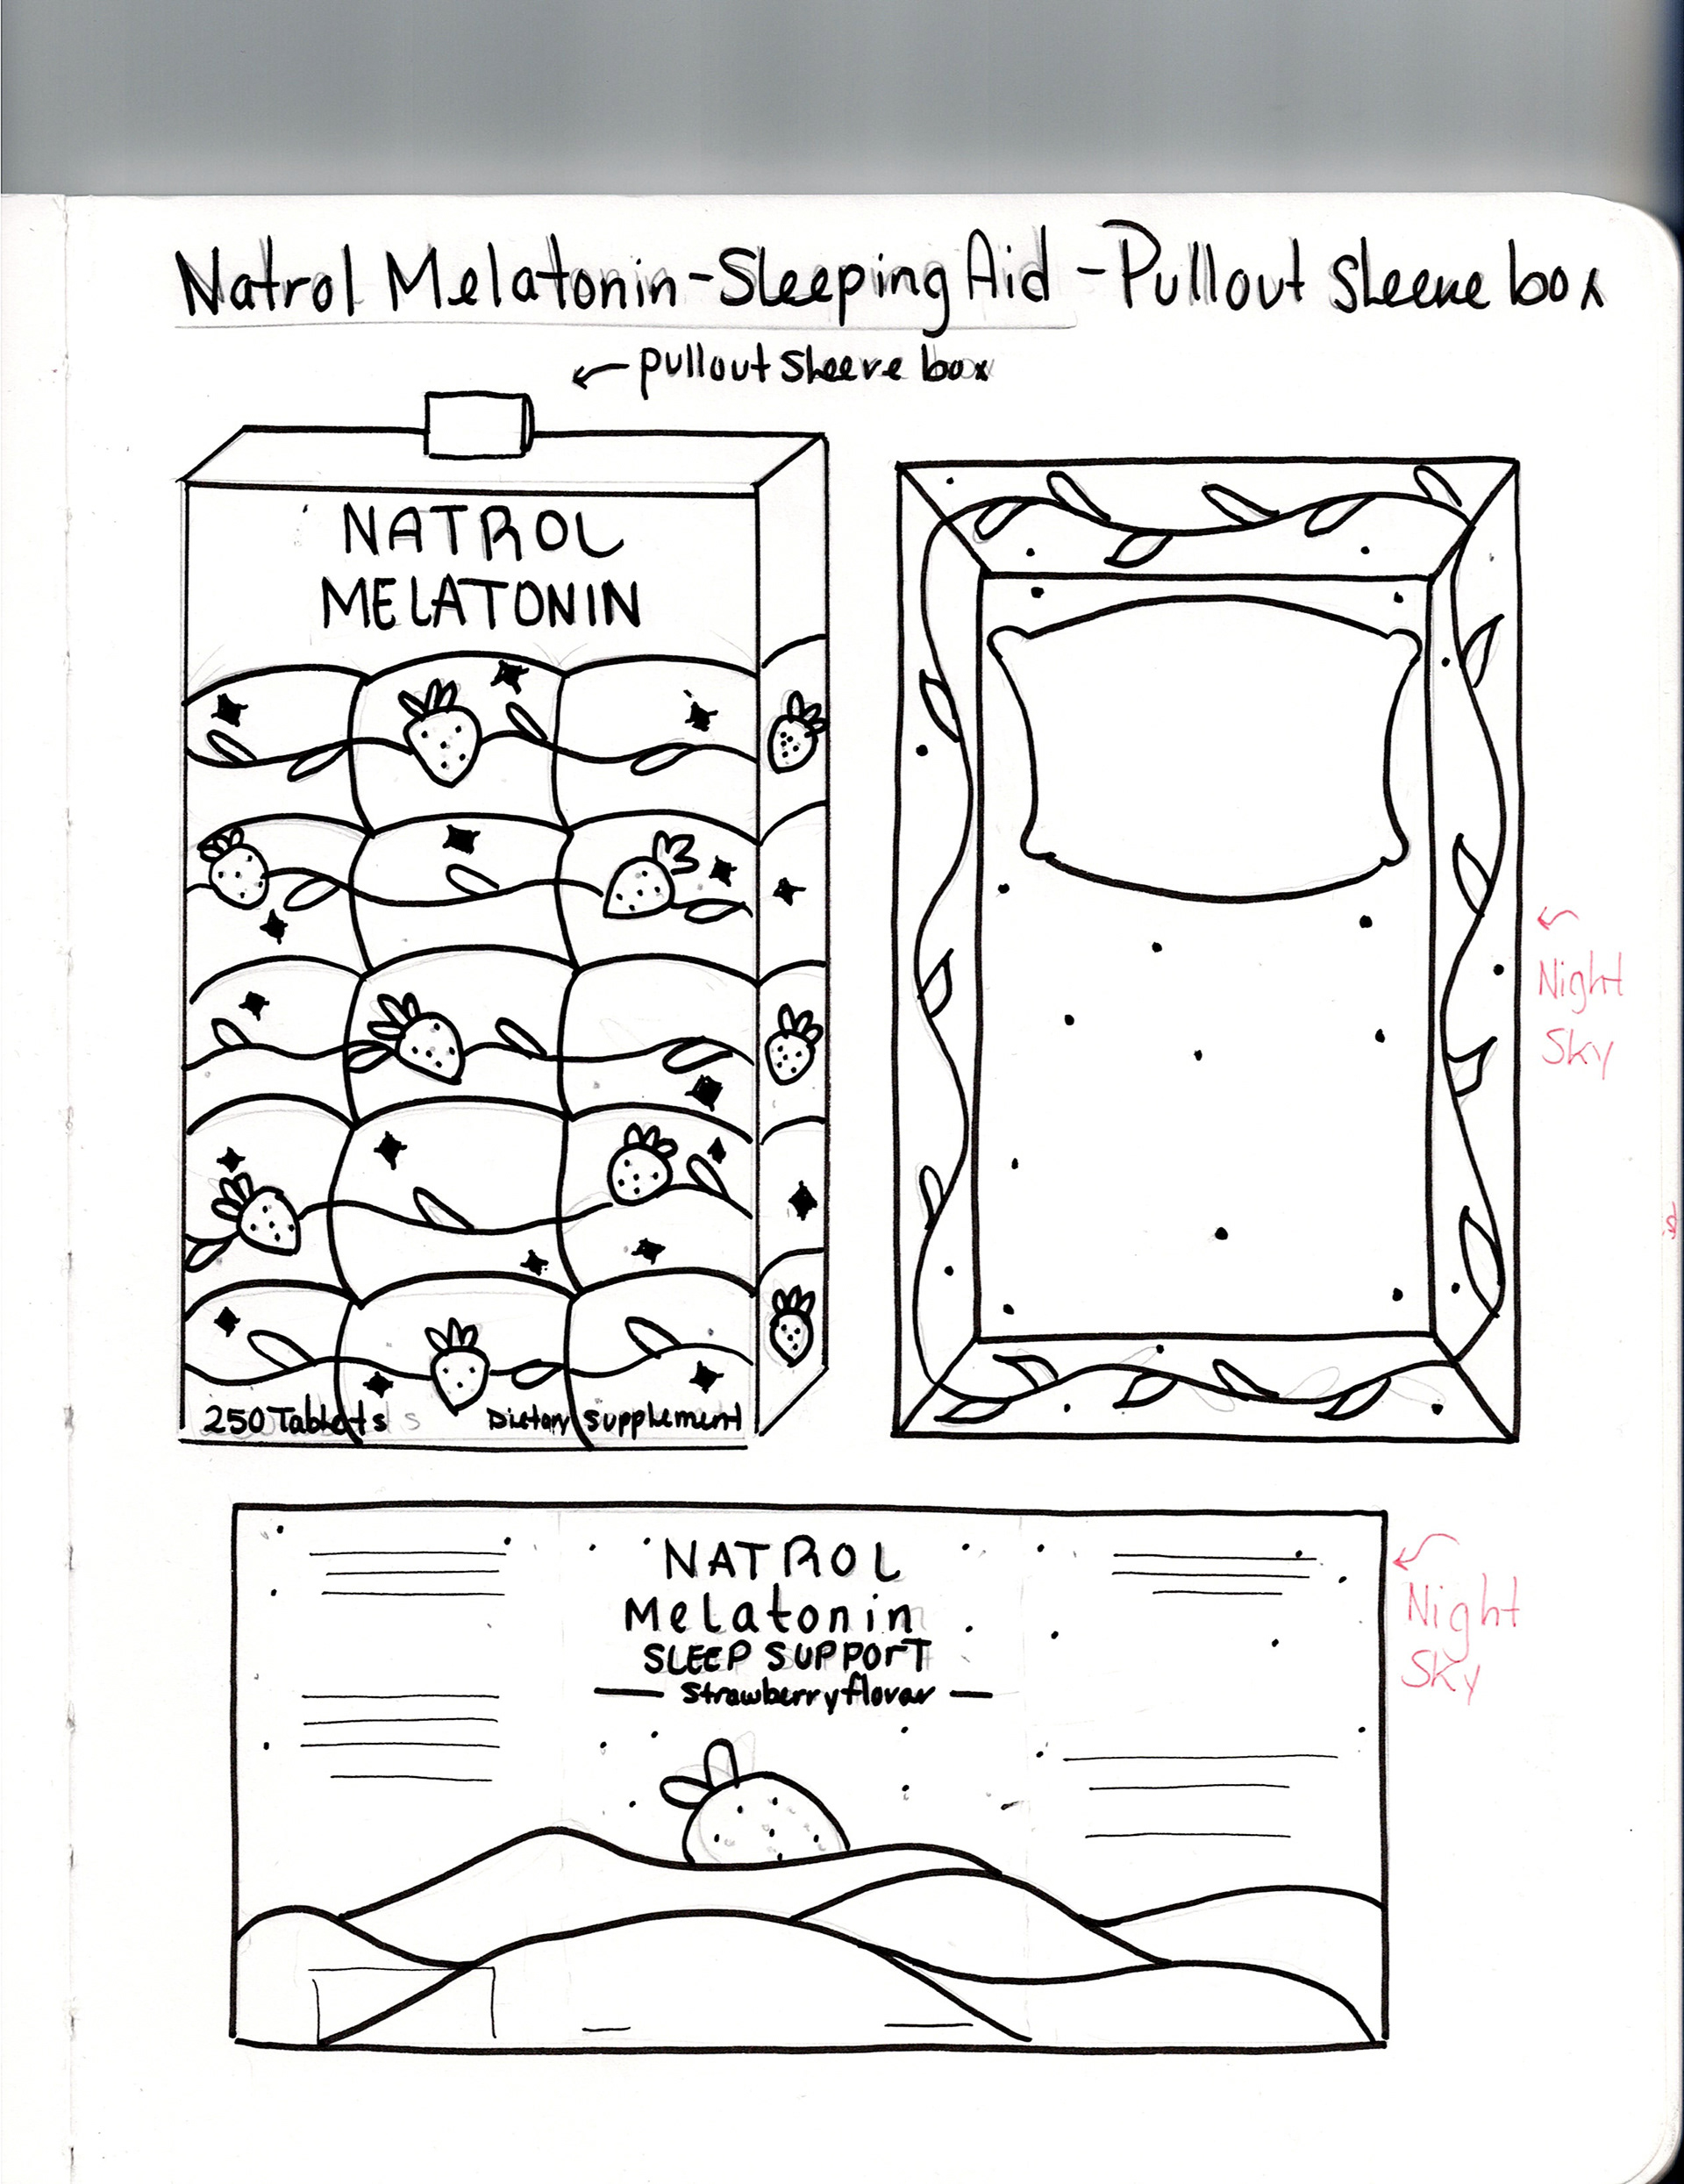 Natrol Melatonin-Sleeping Aid -Pullout Sleeve box
← pullout sleeve box
NATROL
MELATONIN
250 Tablets Dietary Supplement
Night
Sky
NATROL
Melatonin
SLEEP SUPPORT
— Strawberry flavor —
Night
Sky